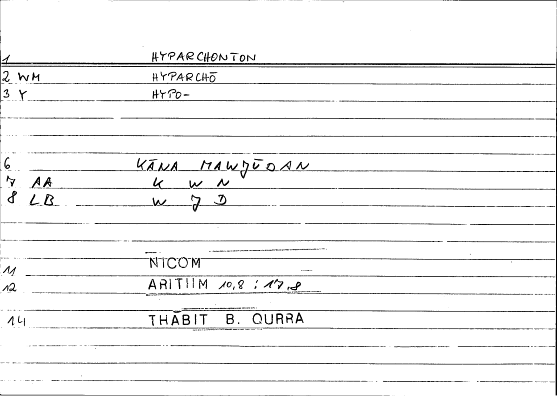 1 HYPARCHONTON
2 WM HYPARCHŌ
3 Y HYPO-
6 KĀNA MAWJŪDAN
7 AA K W N
8 LB W J D
11 NICOM
12 ARITIIM 10,8 : 17,8
14 THĀBIT B. QURRA